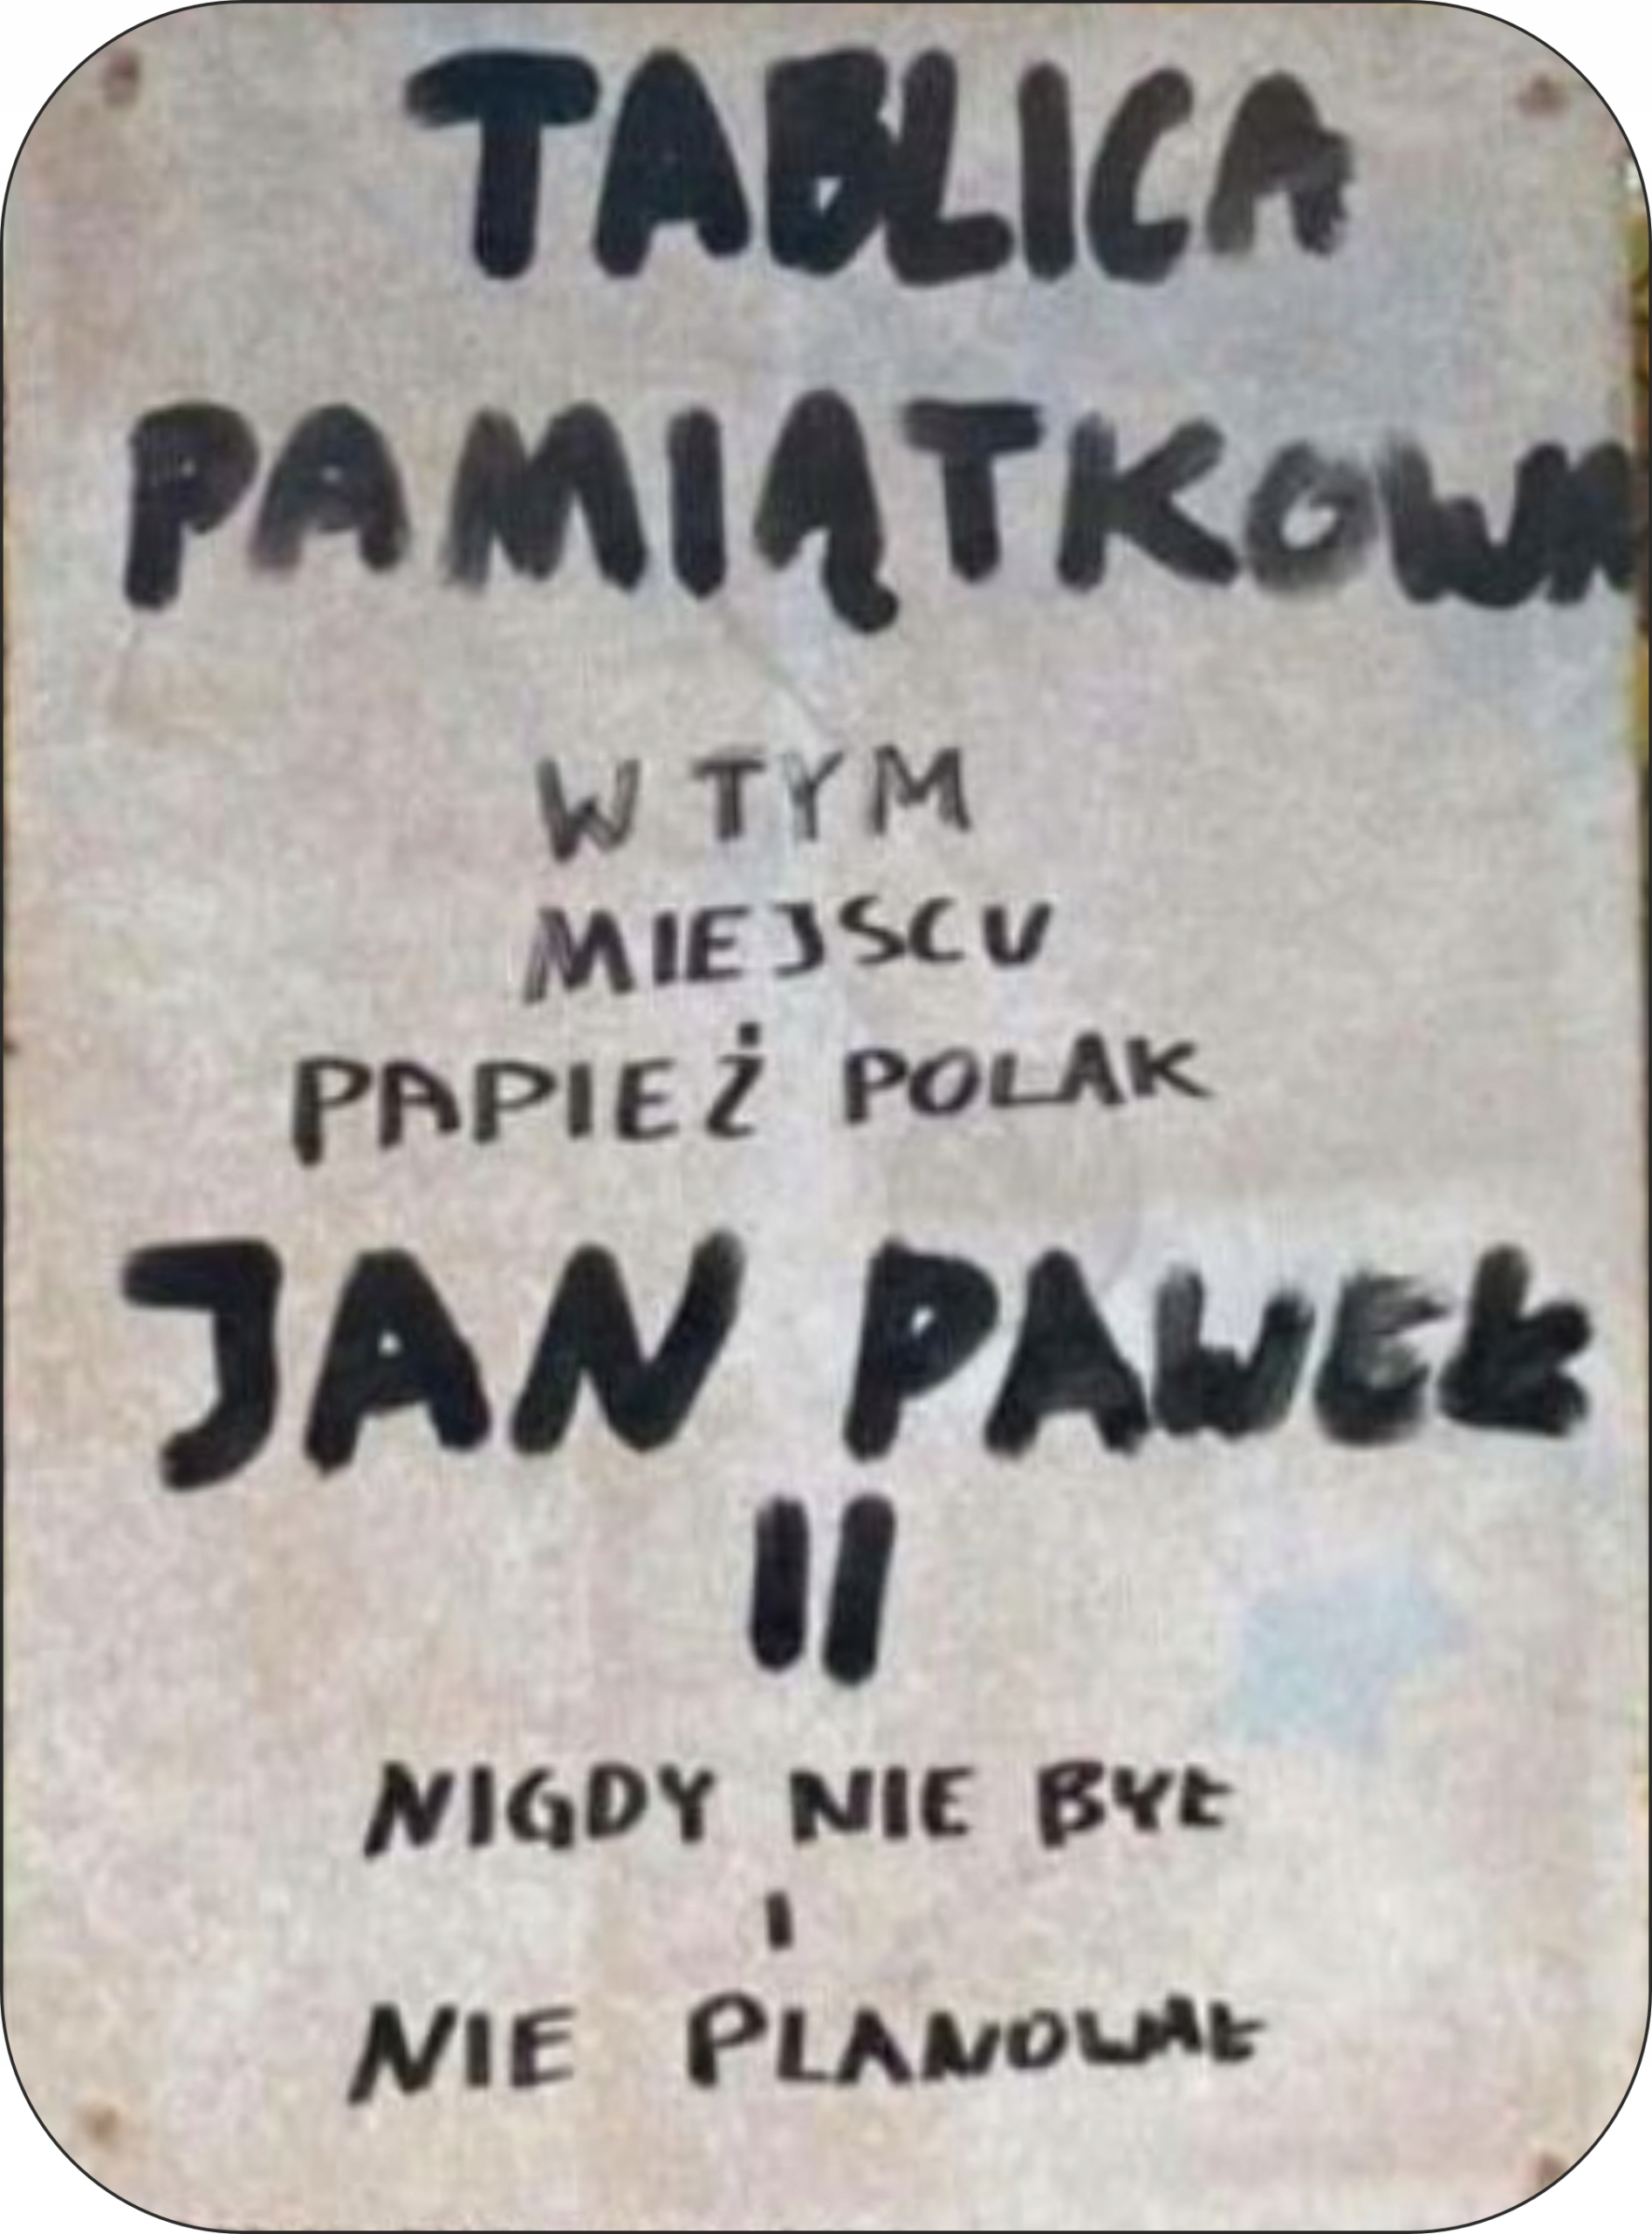 TABLICA
PAMIĄTKOWA
W TYM
MIEJSCU
PAPIEŻ POLAK
JAN PAWEŁ
II
NIGDY NIE BYŁ
I
NIE PLANOWAŁ